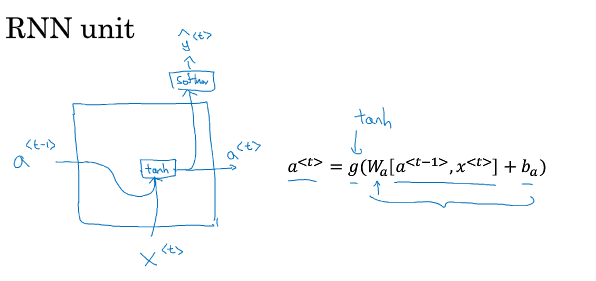 RNN unit
ŷ<t>
softmax
a<t-1>
tanh
a<t>
x<t>
tanh
a<t> = g(Wa[a<t−1>, x<t>] + ba)